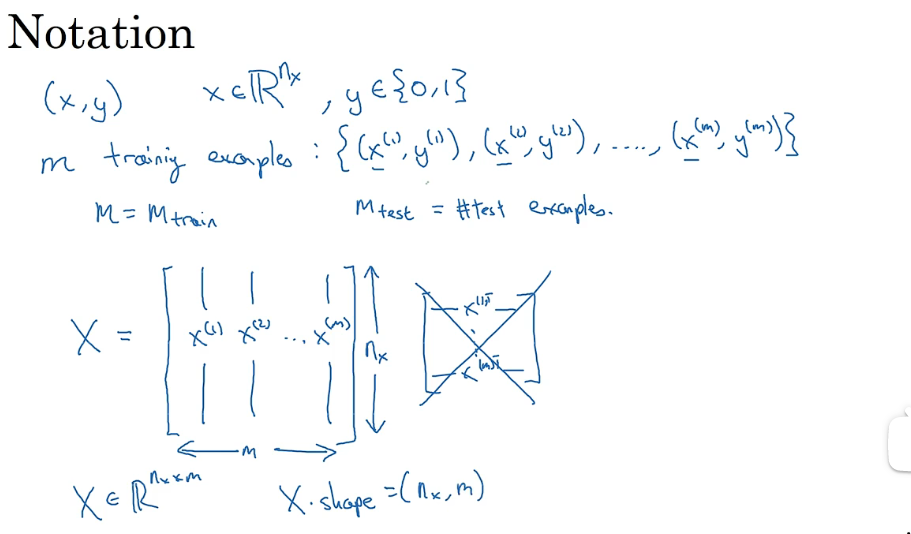 Notation
(x,y) x∈ℝ^{n_x}, y∈{0,1}
m training examples : {(x^{(1)}, y^{(1)}), (x^{(2)}, y^{(2)}), ...., (x^{(m)}, y^{(m)})}
M = M_{train} M_{test} = #test examples.
X = [x^{(1)} x^{(2)} ... x^{(m)}] n_x
x^{(1)T}
x^{(m)T}
m
X ∈ ℝ^{n_x × m} X.shape = (n_x, m)